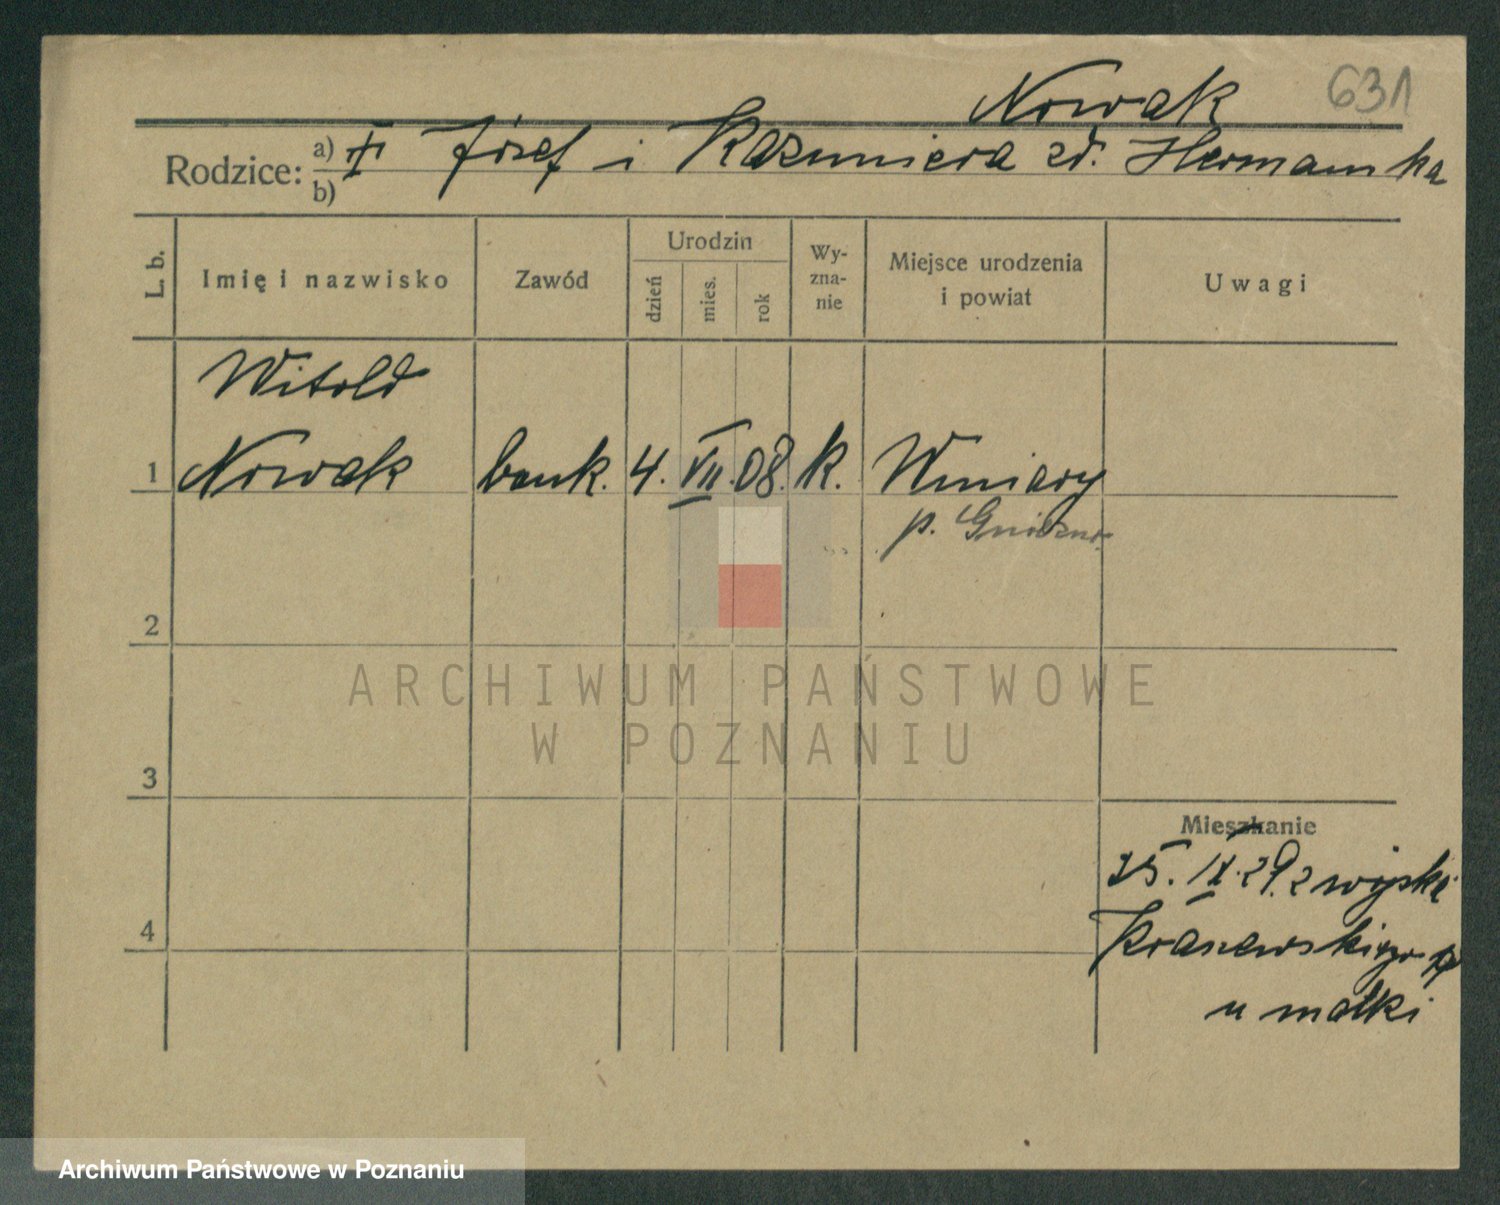 Nowak 631
Rodzice: a) † Józef i Kazimiera zd. Hermańska
b)
L. b. Imię i nazwisko Zawód Urodzin dzień mies. rok Wy-zna-nie Miejsce urodzenia i powiat Uwagi
Witold
1 Nowak bank. 4. VII. 08. k. Winiary
p. Gniezno
2
ARCHIWUM PAŃSTWOWE
W POZNANIU
3
Mieszkanie
IX. 29. z wojska
4 Kraszewskiego
u matki
Archiwum Państwowe w Poznaniu